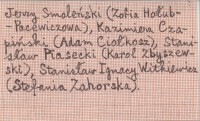 Jerzy Smoleński (Zofia Hołub-
Pacewiczowa), Kazimierz Cza-
piński (Adam Ciołkosz), Stani-
sław Piasecki (Karol Zbyszew-
ski), Stanisław Ignacy Witkiewicz
(Stefania Zahorska).